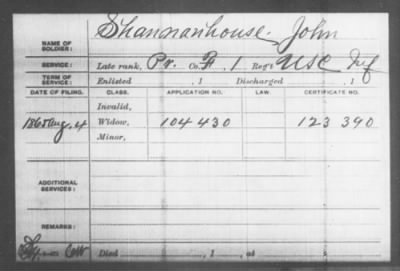 NAME OF SOLDIER: Shannanhouse, John
SERVICE: Late rank, Pv. Co. F, 1 Reg't USC Inf
TERM OF SERVICE: Enlisted , 1 Discharged , 1
DATE OF FILING. CLASS. APPLICATION NO. LAW. CERTIFICATE NO.
Invalid,
1865 Aug. 4 Widow, 104430 123390
Minor,
ADDITIONAL SERVICES:
REMARKS:
Died , 1 , at